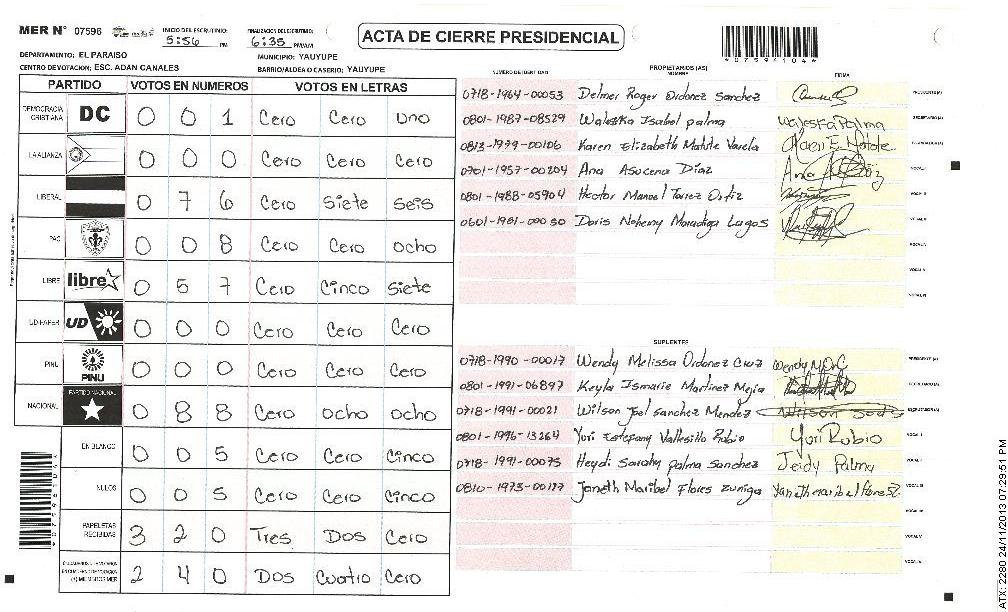 MER Nº 07596 INICIO DEL ESCRUTINIO: 5:56 PM FINALIZACION DEL ESCRUTINIO: 6:35 PM/AM
ACTA DE CIERRE PRESIDENCIAL
*07594104*
DEPARTAMENTO: EL PARAISO MUNICIPIO: YAUYUPE
CENTRO DE VOTACION: ESC. ADAN CANALES BARRIO/ALDEA O CASERIO: YAUYUPE
PARTIDO VOTOS EN NUMEROS VOTOS EN LETRAS
DEMOCRACIA CRISTIANA DC 0 0 1 Cero Cero Uno
LA ALIANZA 0 0 0 Cero Cero Cero
LIBERAL 0 7 6 Cero Siete Seis
PAC 0 0 8 Cero Cero Ocho
LIBRE libre 0 5 7 Cero Cinco Siete
UD-FAPER UD 0 0 0 Cero Cero Cero
PINU PINU 0 0 0 Cero Cero Cero
NACIONAL PARTIDO NACIONAL 0 8 8 Cero Ocho Ocho
EN BLANCO 0 0 5 Cero Cero Cinco
NULOS 0 0 5 Cero Cero Cinco
PAPELETAS RECIBIDAS 3 2 0 Tres Dos Cero
(+) MIEMBROS MER 2 4 0 Dos Cuatro Cero
NUMERO DE IDENTIDAD PROPIETARIOS (AS) NOMBRE FIRMA
0718-1964-00053 Delmer Roger Ordonez Sanchez PRESIDENTE (A)
0801-1987-08529 Waleska Isabel palma Waleska Palma SECRETARIO (A)
0813-1979-00106 Karen Elizabeth Matute Varela ESCRUTADOR (A)
0701-1957-00204 Ana Asucena Diaz VOCAL I
0801-1988-05904 Hector Manuel Torrez Ortiz VOCAL II
0601-1981-00050 Doris Nohemy Moradiga Lagos VOCAL III
VOCAL IV
VOCAL V
VOCAL VI
SUPLENTES
0718-1990-00017 Wendy Melissa Ordonez Cruz Wendy M.O.C PRESIDENTE (A)
0801-1991-06897 Keyla Ismarie Martinez Mejia SECRETARIO (A)
0718-1991-00021 Wilson Joel sanchez Mendez Wilson ESCRUTADOR (A)
0801-1996-13264 Yuri Estepany Vallesillo Rubio Yuri Rubio VOCAL I
0718-1991-00075 Heydi Sarahy palma sanchez Jeidy Palma VOCAL II
0810-1973-00177 Janeth Maribel Flores Zuniga VOCAL III
VOCAL IV
VOCAL V
VOCAL VI
ATX: 2280 24/11/2013 07:29:51 PM